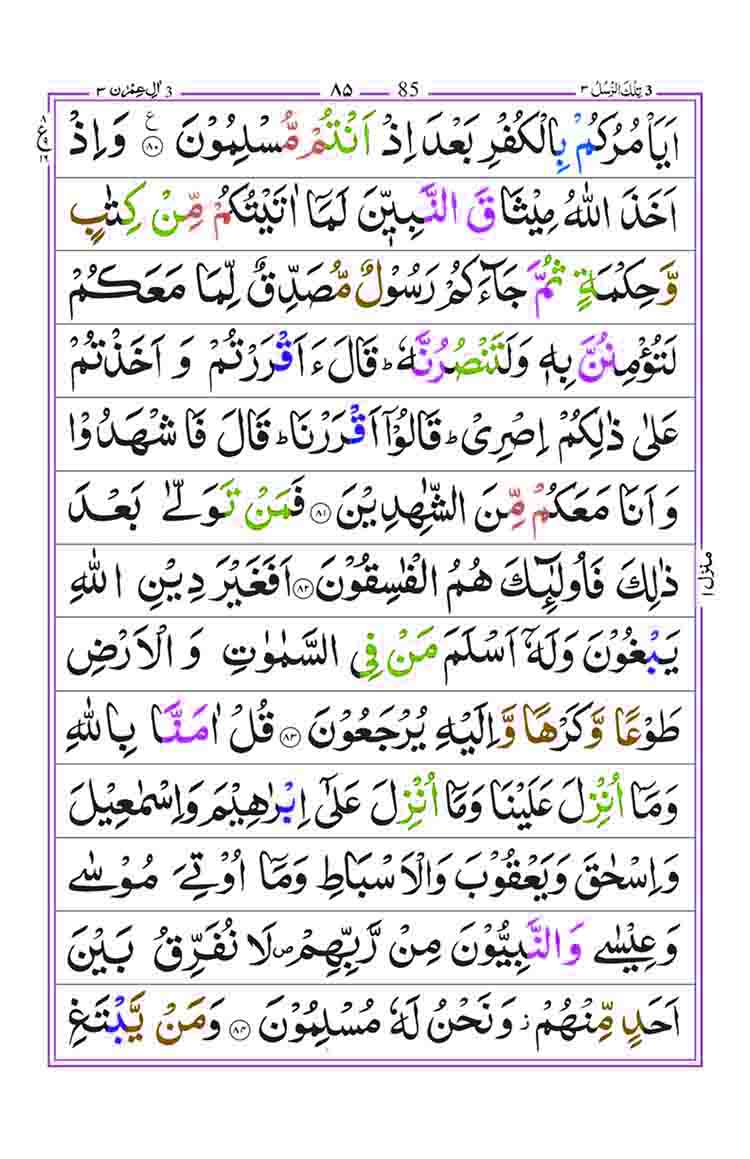 3 تِلْكَ الرُّسُلُ ٣
85 ٨٥
3 اٰلِ عِمْرٰن ٣
اَيَاْمُرُكُمْ بِالْكُفْرِ بَعْدَ اِذْ اَنْتُمْ مُّسْلِمُوْنَ ﴿٨٠﴾ ع وَ اِذْ
اَخَذَ اللّٰهُ مِيْثَاقَ النَّبِيّٖنَ لَمَاۤ اٰتَيْتُكُمْ مِّنْ كِتٰبٍ
وَّ حِكْمَةٍ ثُمَّ جَآءَكُمْ رَسُوْلٌ مُّصَدِّقٌ لِّمَا مَعَكُمْ
لَتُؤْمِنُنَّ بِهٖ وَ لَتَنْصُرُنَّهٗ ؕ قَالَ ءَاَقْرَرْتُمْ وَ اَخَذْتُمْ
عَلٰى ذٰلِكُمْ اِصْرِيْ ؕ قَالُوْۤا اَقْرَرْنَا ؕ قَالَ فَاشْهَدُوْا
وَ اَنَا مَعَكُمْ مِّنَ الشّٰهِدِيْنَ ﴿٨١﴾ فَمَنْ تَوَلّٰى بَعْدَ
ذٰلِكَ فَاُولٰٓئِكَ هُمُ الْفٰسِقُوْنَ ﴿٨٢﴾ اَفَغَيْرَ دِيْنِ اللّٰهِ
يَبْغُوْنَ وَ لَهٗۤ اَسْلَمَ مَنْ فِي السَّمٰوٰتِ وَ الْاَرْضِ
طَوْعًا وَّ كَرْهًا وَّ اِلَيْهِ يُرْجَعُوْنَ ﴿٨٣﴾ قُلْ اٰمَنَّا بِاللّٰهِ
وَ مَاۤ اُنْزِلَ عَلَيْنَا وَ مَاۤ اُنْزِلَ عَلٰۤى اِبْرٰهِيْمَ وَ اِسْمٰعِيْلَ
وَ اِسْحٰقَ وَ يَعْقُوْبَ وَ الْاَسْبَاطِ وَ مَاۤ اُوْتِيَ مُوْسٰى
وَ عِيْسٰى وَ النَّبِيُّوْنَ مِنْ رَّبِّهِمْ ۪ لَا نُفَرِّقُ بَيْنَ
اَحَدٍ مِّنْهُمْ ؗ وَ نَحْنُ لَهٗ مُسْلِمُوْنَ ﴿٨٤﴾ وَ مَنْ يَّبْتَغِ
منزل ١